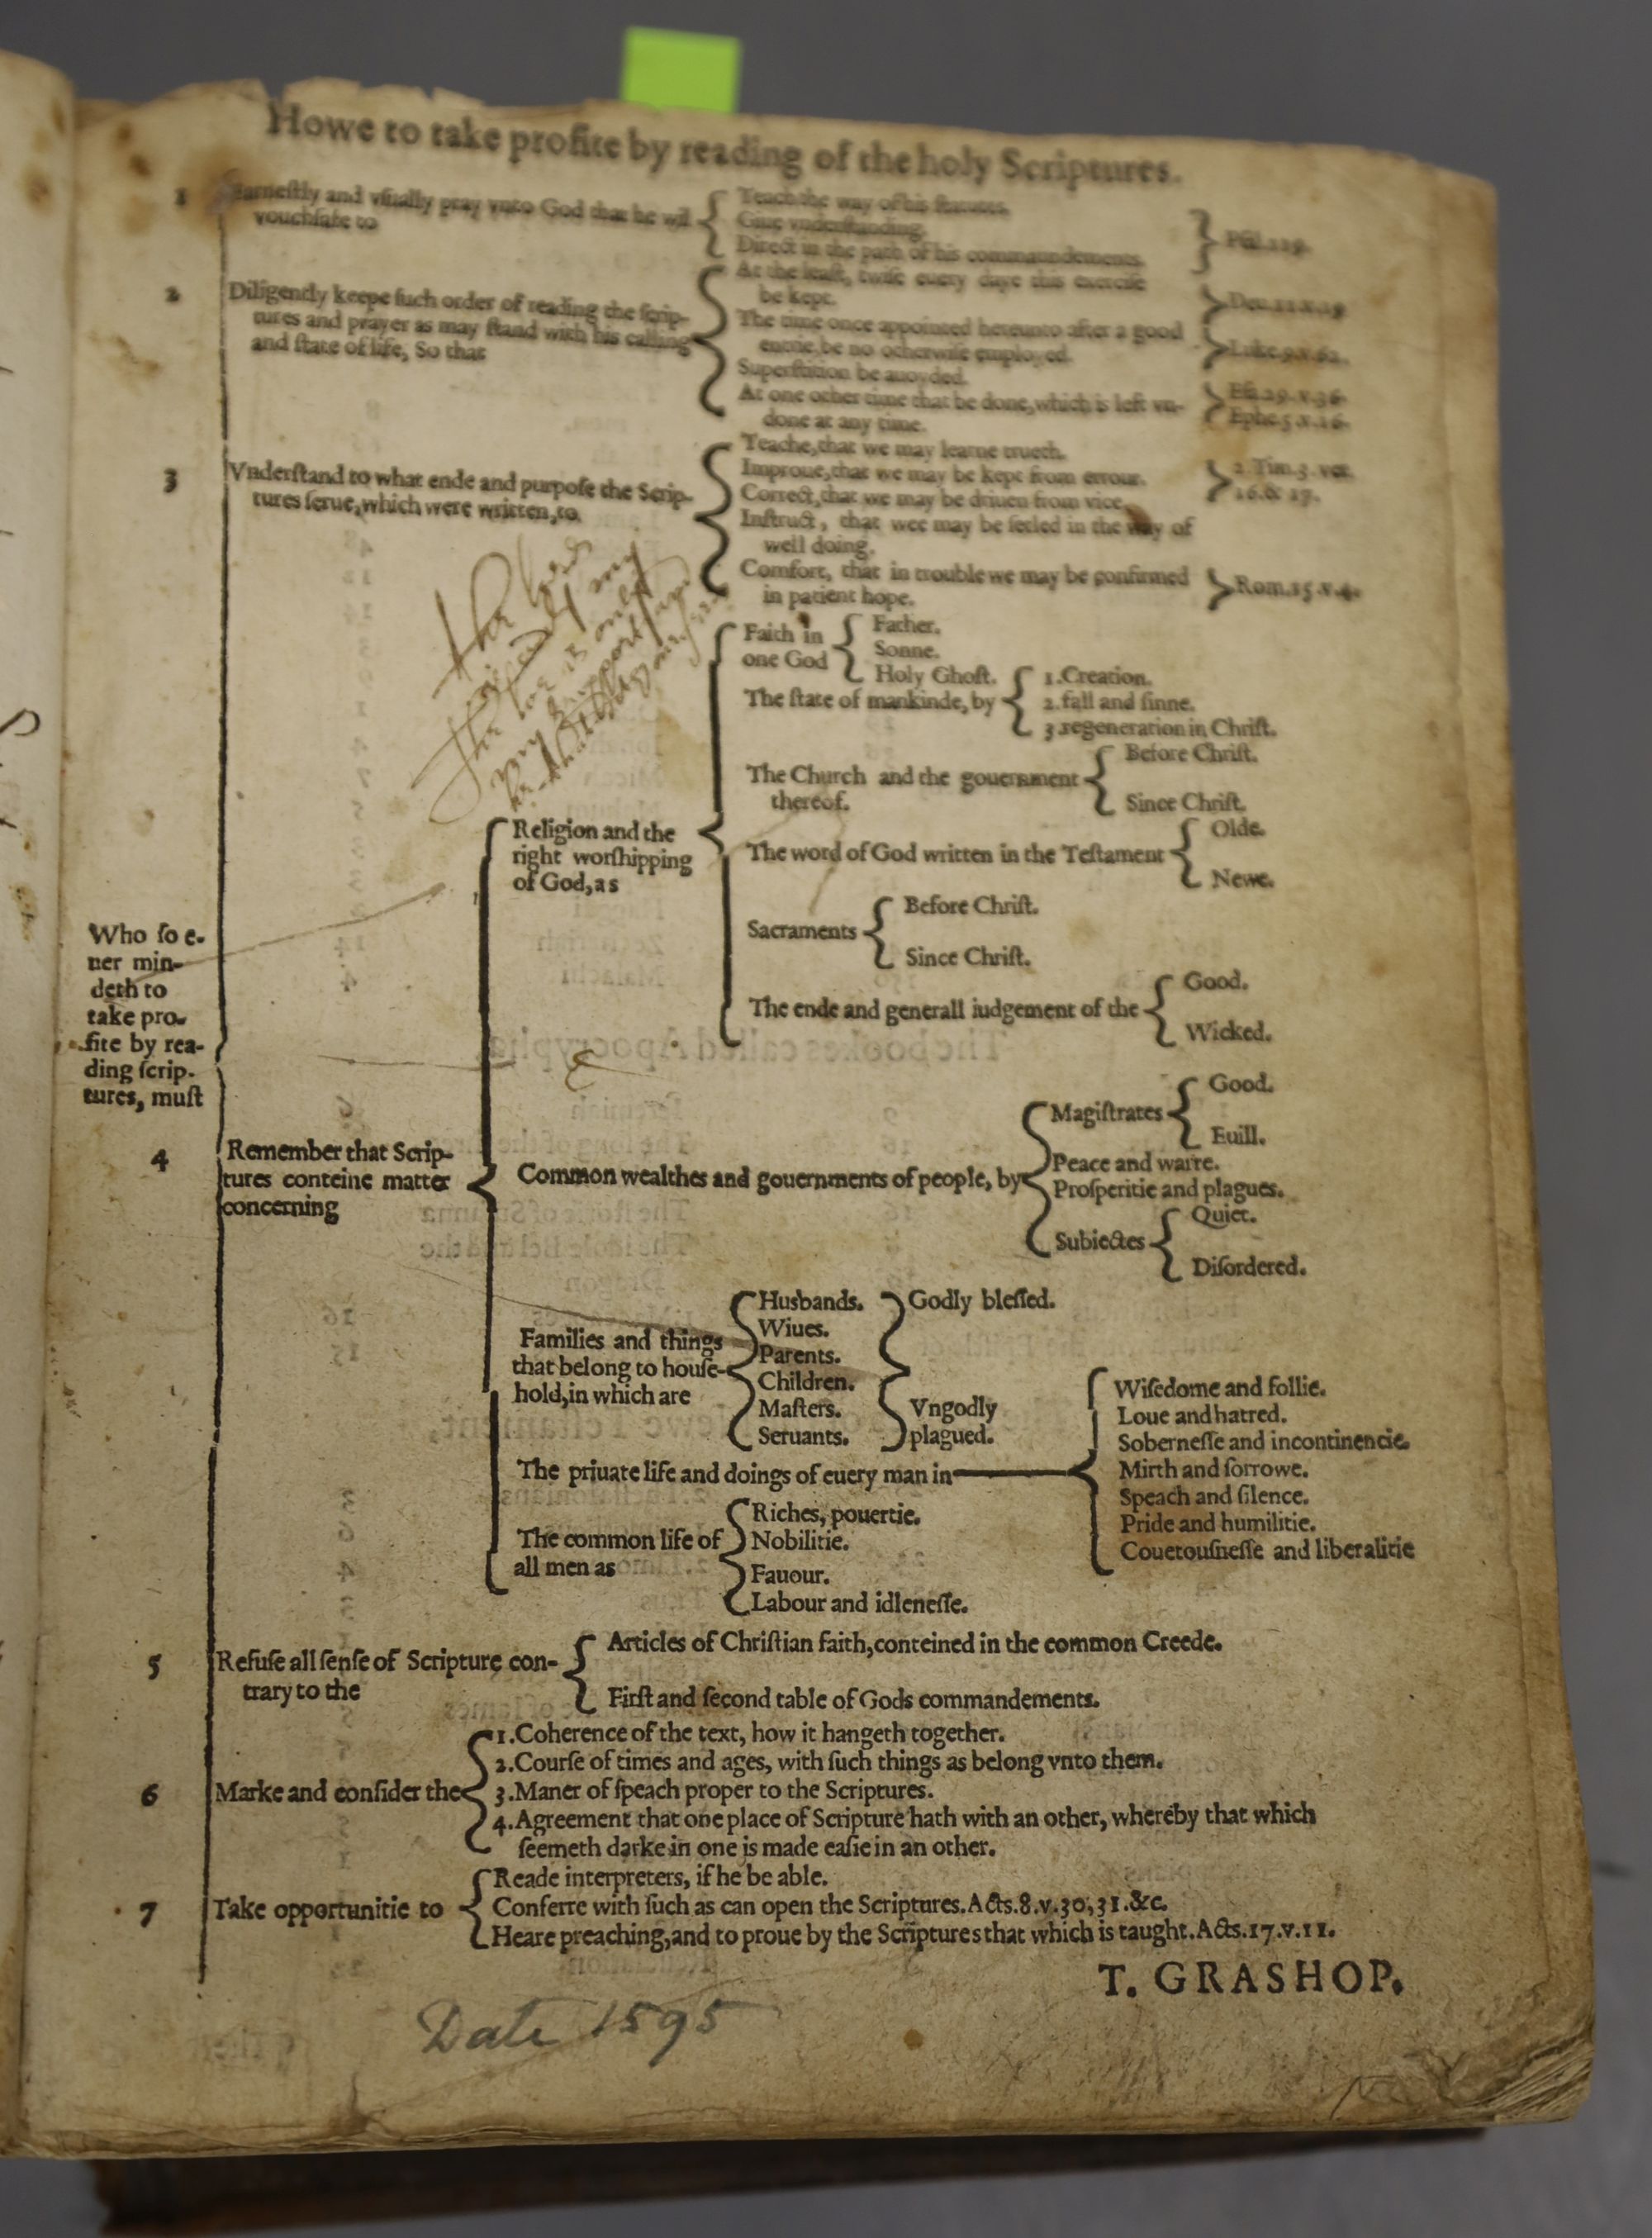 Howe to take profite by reading of the holy Scriptures.
1 Earnestly and vsually pray vnto God that he wil
vouchsafe to
Teach the way of his statutes.
Giue vnderstanding.
Direct in the path of his commaundements.
Psal.119.
2 Diligently keepe such order of reading the scrip-
tures and prayer as may stand with his calling
and state of life, So that
At the least, twise euery daye this exercise
be kept.
Deu.11.v.19
The time once appointed hereunto after a good
entrie, be no otherwise employed.
Luke.9.v.62.
Superstition be auoyded.
At one other time that be done, which is left vn-
done at any time.
Esa.29.v.36.
Ephe.5.v.16.
3 Vnderstand to what ende and purpose the Scrip-
tures serue, which were written, to
Teache, that we may learne trueth.
Improue, that we may be kept from errour.
Correct, that we may be driuen from vice.
Instruct, that wee may be setled in the way of
well doing.
2.Tim.3. ver.
16.& 17.
Comfort, that in trouble we may be confirmed
in patient hope.
Rom.15.v.4.
Who so e-
uer min-
deth to
take pro-
fite by rea-
ding scrip-
tures, must
4 Remember that Scrip-
tures conteine matter
concerning
Religion and the
right worshipping
of God, as
Faith in
one God
Father.
Sonne.
Holy Ghost.
The state of mankinde, by
1.Creation.
2.fall and sinne.
3.regeneration in Christ.
The Church and the gouernment
thereof.
Before Christ.
Since Christ.
The word of God written in the Testament
Olde.
Newe.
Sacraments
Before Christ.
Since Christ.
The ende and generall iudgement of the
Good.
Wicked.
Common wealthes and gouernments of people, by
Magistrates
Good.
Euill.
Peace and warre.
Prosperitie and plagues.
Subiectes
Quiet.
Disordered.
Families and things
that belong to house-
hold, in which are
Husbands.
Wiues.
Parents.
Children.
Masters.
Seruants.
Godly blessed.
Vngodly
plagued.
The priuate life and doings of euery man in
Wisedome and follie.
Loue and hatred.
Sobernesse and incontinencie.
Mirth and sorrowe.
Speach and silence.
Pride and humilitie.
Couetousnesse and liberalitie
The common life of
all men as
Riches, pouertie.
Nobilitie.
Fauour.
Labour and idlenesse.
5 Refuse all sense of Scripture con-
trary to the
Articles of Christian faith, conteined in the common Creede.
First and second table of Gods commandements.
6 Marke and consider the
1.Coherence of the text, how it hangeth together.
2.Course of times and ages, with such things as belong vnto them.
3.Maner of speach proper to the Scriptures.
4.Agreement that one place of Scripture hath with an other, whereby that which
seemeth darke in one is made easie in an other.
7 Take opportunitie to
Reade interpreters, if he be able.
Conferre with such as can open the Scriptures. Acts.8.v.30,31.&c.
Heare preaching, and to proue by the Scriptures that which is taught. Acts.17.v.11.
T. GRASHOP.
Date 1595